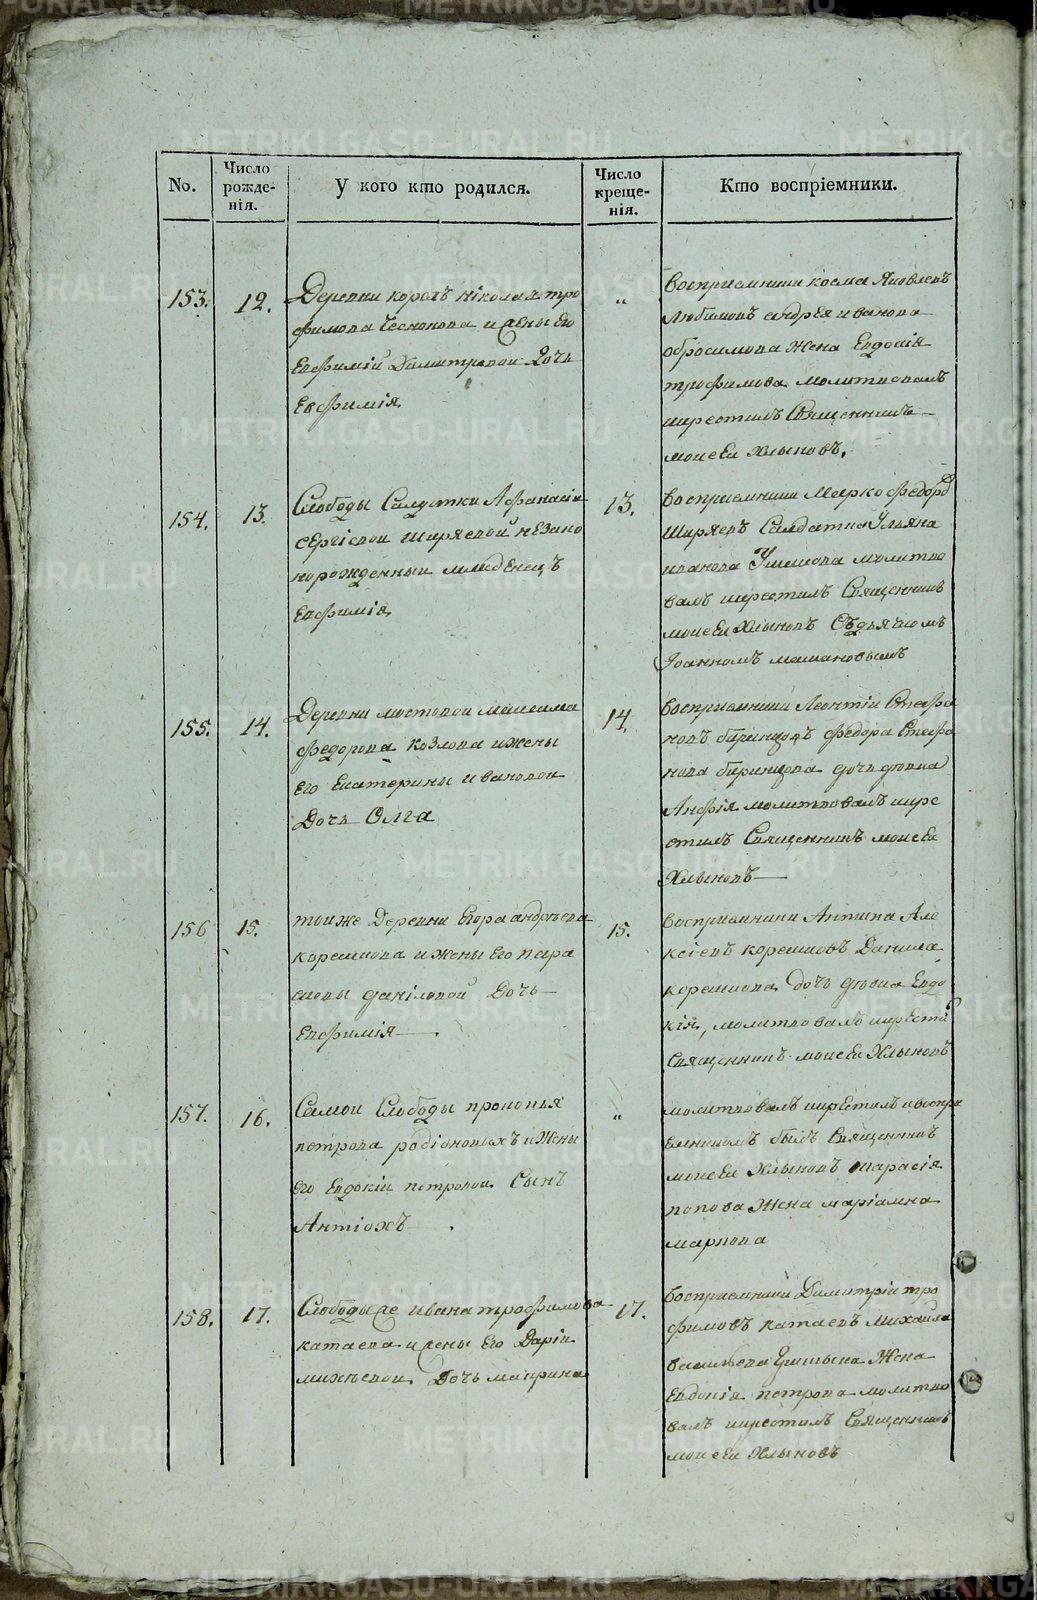 METRIKI.GASO-URAL.RU
No.
Число рожде-нія.
У кого кто родился.
Число креще-нія.
Кто воспріемники.
153.
12.
Деревни
николая тро
фимова Чеснокова и жены Его
Евфимiи Димитревои Дочь
Евфимiя
"
восприемники косма Яковлевъ
Любимовъ андрея иванова
обросимова жена Евдокiя
трофимова молитвовалъ
икрестилъ Священникъ
моисеи Хлыновъ.
154.
13.
Слободы Салдатки Афанасiи
сергiевои Ширяевои незако
норожденныи младенецъ
Евфимiя
13.
восприемники Марко федоров
Ширяевъ Салдатка Ульяна
иванова молитво
валъ икрестилъ Священникъ
моисеи Хлыновъ Съдьячкомъ
Iоанномъ
155.
14.
Деревни мостовои максима
федорова козлова ижены
Его Екатерины ивановои
Дочь Олга
14.
восприемники Леонтiи Стефа
новъ бирюцовъ федора Стефа
нова бирюцова дочь девка
Анфiя молитвовалъ икре
стилъ Священникъ моисеи
Хлыновъ
156
15.
тоиже Деревни Егора андреева
корепанова ижены Его пара
скевы данiловои Дочь
Евфимiя
15.
восприемники Антипа Але
ксiевъ Данила
дочь девка Евдо
кiя, молитвовалъ икрестил
Священникъ моисеи Хлыновъ
157.
16.
Самои Слободы прокопья
петрова родiоновыхъ ижены
Его Евдокiи петровои Сынъ
Антiохъ
"
молитвовалъ икрестилъ ивоспри
емникомъ былъ Священникъ
моисеи Хлыновъ тарасiя
попова Жена марiамна
маркова
158.
17.
Слободы ивана трофимова
катаева и жены Его Дарiи
михеевои Дочь маврина
17.
восприемники Димитрiи тро
фимовъ катаевъ Михаила
васильева Жена
Евдокiя петрова молитво
валъ икрестилъ Священникъ
моисеи Хлыновъ